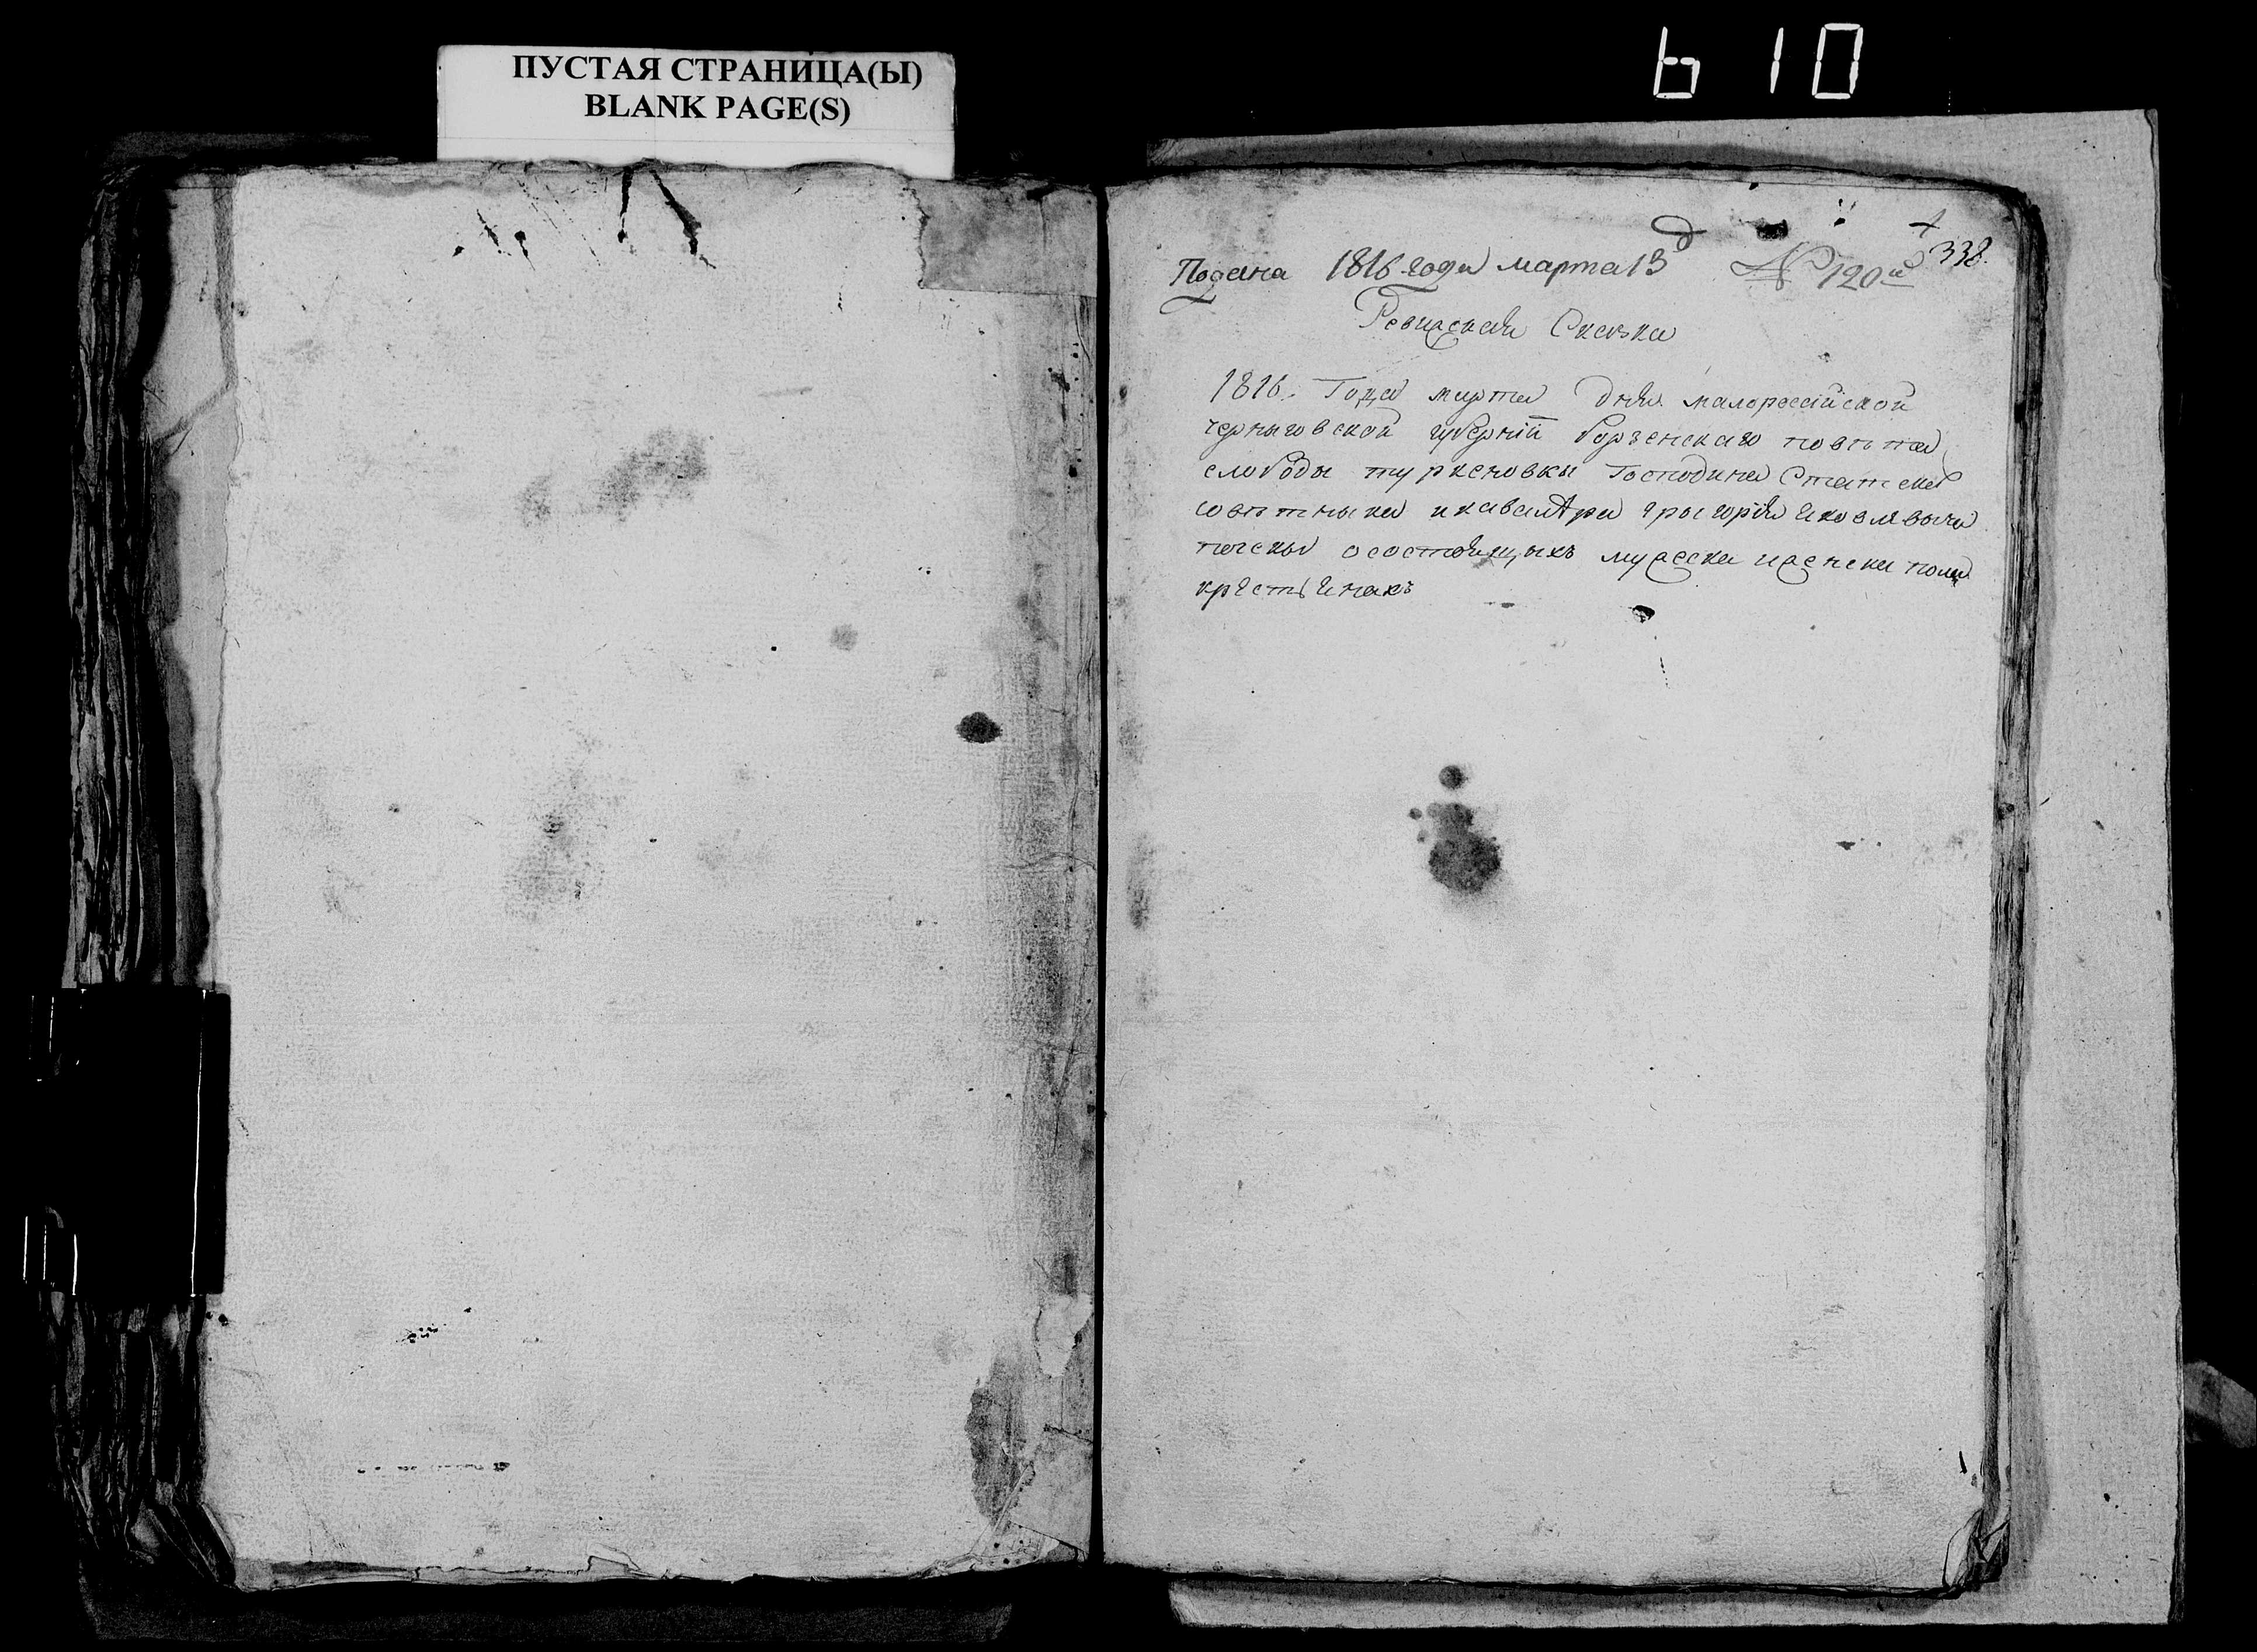 ПУСТАЯ СТРАНИЦА(Ы)
BLANK PAGE(S)
610
338.
Подана 1816 года марта 13д № 120й
Ревиская Сказка
1816. Года марта дня малороссійской
черныговской губерніи борзенскаго повѣта
слободы туркеновки Господина Статског
совѣтныка и кавалера грыгорія
о состоящыхъ муска и женска пола
крестьянахъ